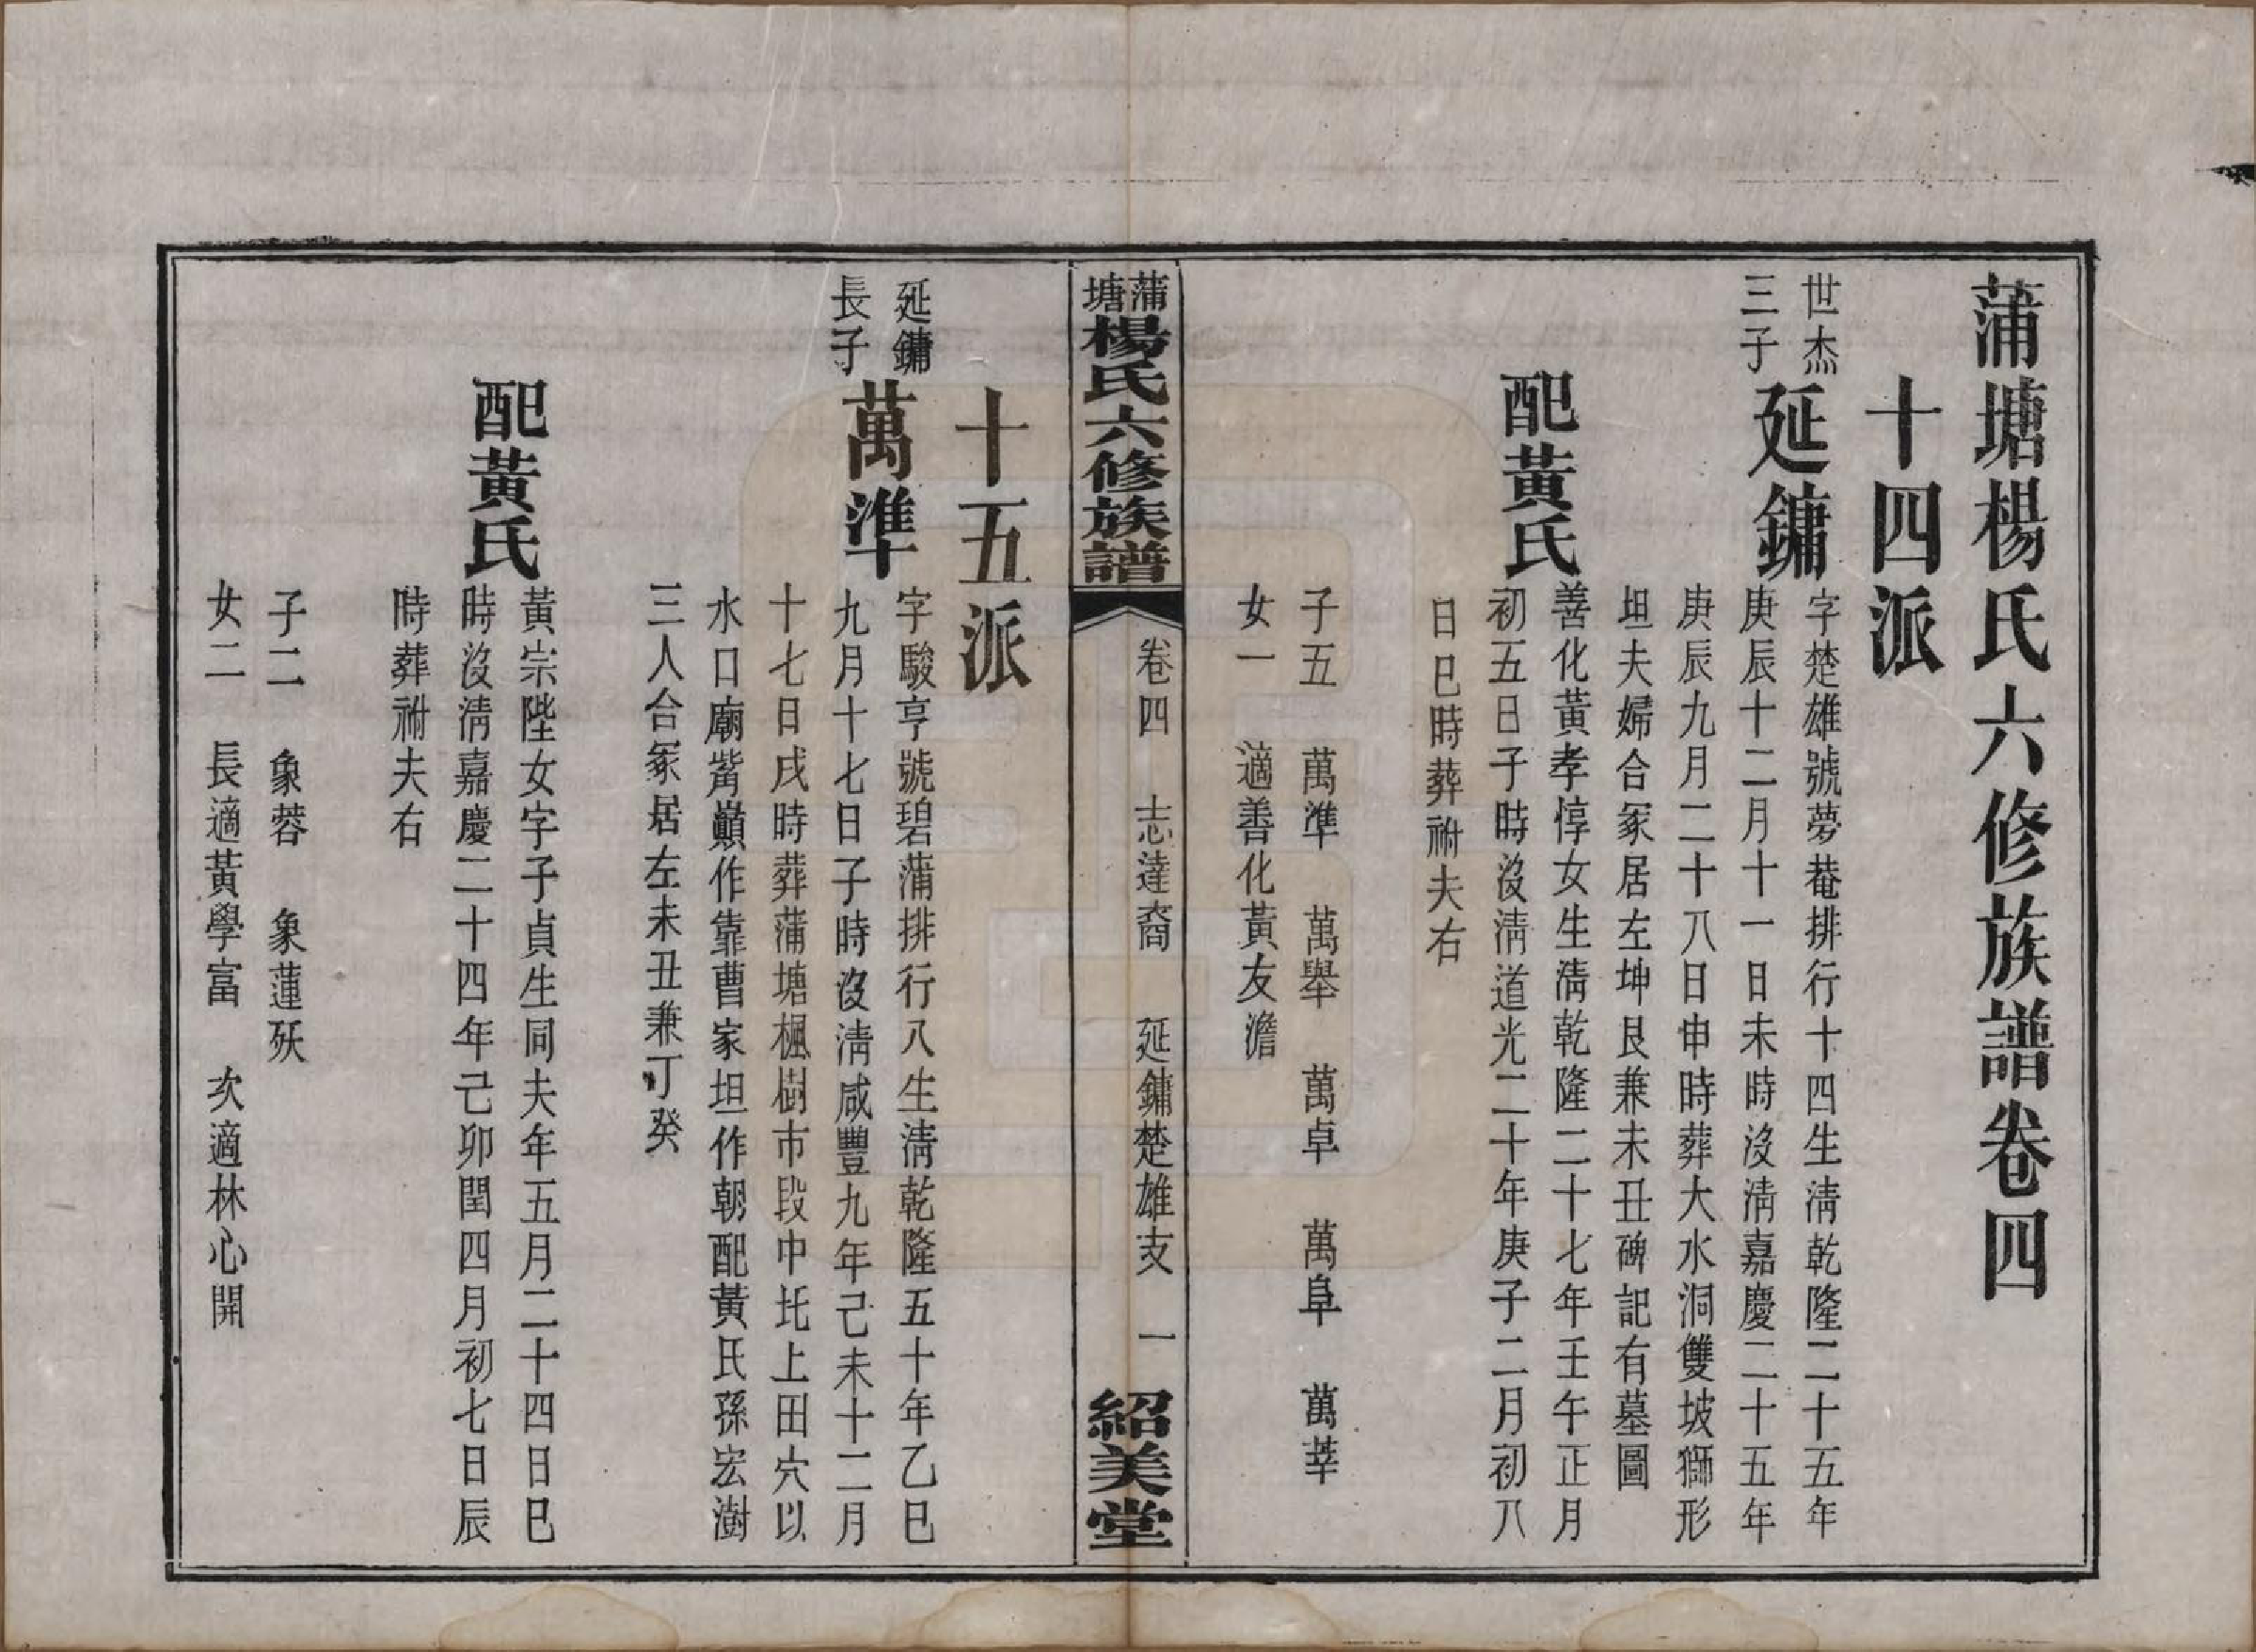 蒲塘楊氏六修族譜卷四
十四派
世杰
三子
延鏞
字楚雄號夢菴排行十四生淸乾隆二十五年
庚辰十二月十一日未時沒淸嘉慶二十五年
庚辰九月二十八日申時葬大水洞雙坡獅形
坦夫婦合冢居左坤艮兼未丑碑記有墓圖
配黃氏
善化黃孝惇女生淸乾隆二十七年壬午正月
初五日子時沒淸道光二十年庚子二月初八
日巳時葬祔夫右
子五 萬準 萬舉 萬卓 萬阜 萬莘
女一 適善化黃友澹
蒲塘楊氏六修族譜 卷四 志達裔 延鏞楚雄支 一 紹美堂
十五派
延鏞
長子
萬準
字駿亨號碧蒲排行八生淸乾隆五十年乙巳
九月十七日子時沒淸咸豐九年己未十二月
十七日戌時葬蒲塘楓樹市段中圫上田穴以
水口廟觜巔作靠曹家坦作朝配黃氏孫宏澍
三人合冢居左未丑兼丁癸
配黃氏
黃宗陛女字子貞生同夫年五月二十四日巳
時沒淸嘉慶二十四年己卯閏四月初七日辰
時葬祔夫右
子二 象蓉 象蓮殀
女二 長適黃學富 次適林心開